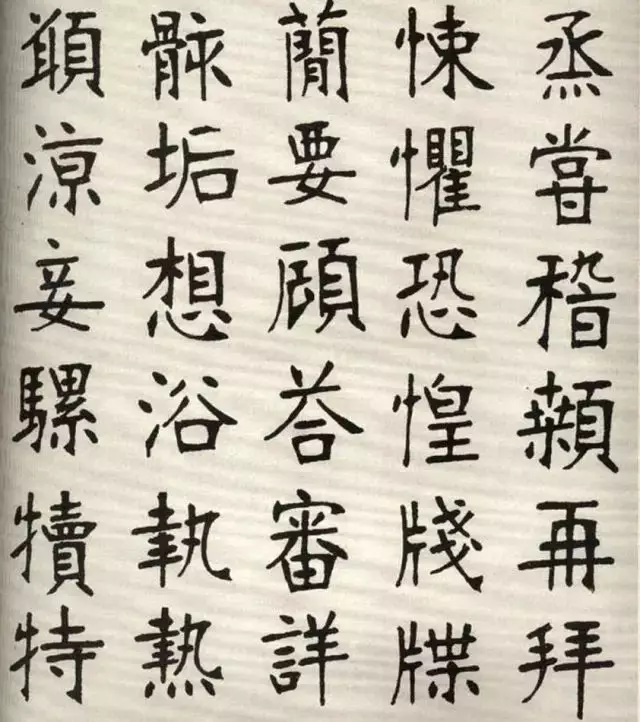 烝甞稽顙再拜
悚懼恐惶牋牒
蕳要頋荅審詳
骸垢想浴執熱
願涼妾騾犢特